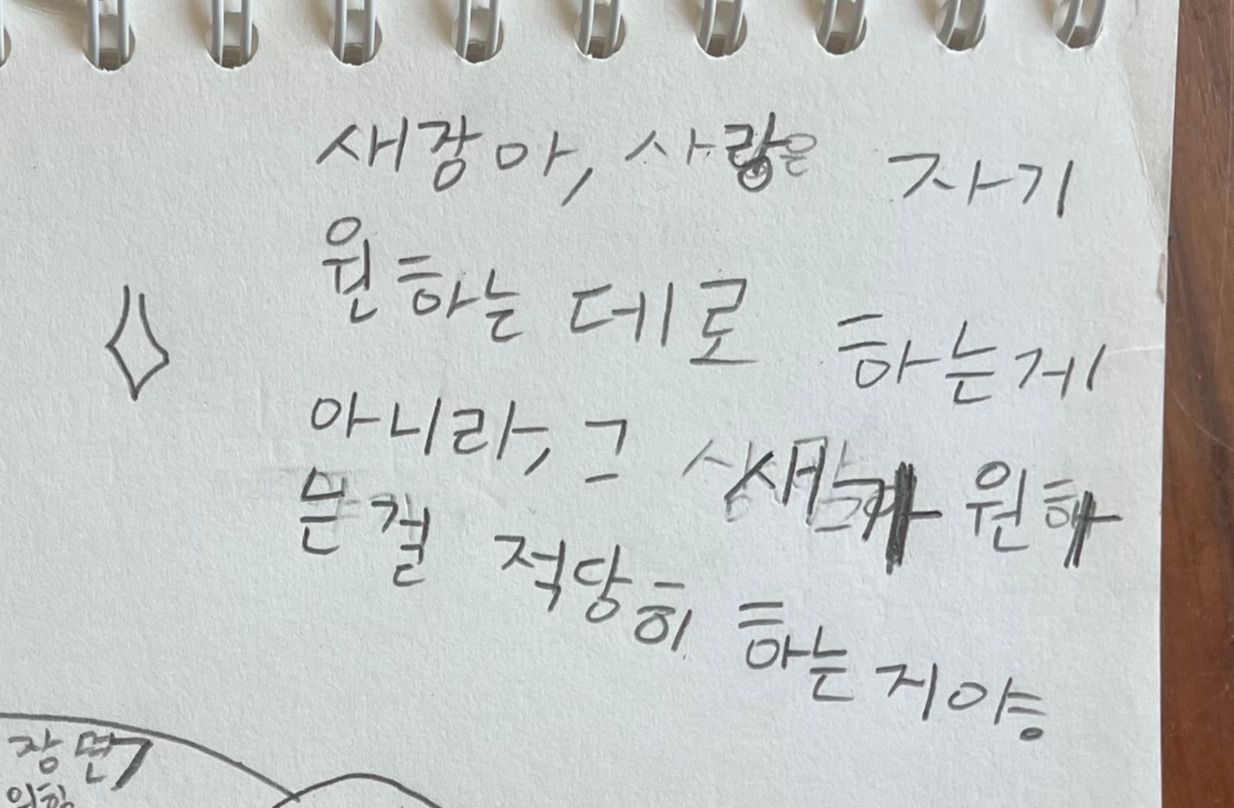 새장아, 사랑은 자기
원하는 데로 하는게
아니라, 그 새가 원하
는걸 적당히 하는거야
장면